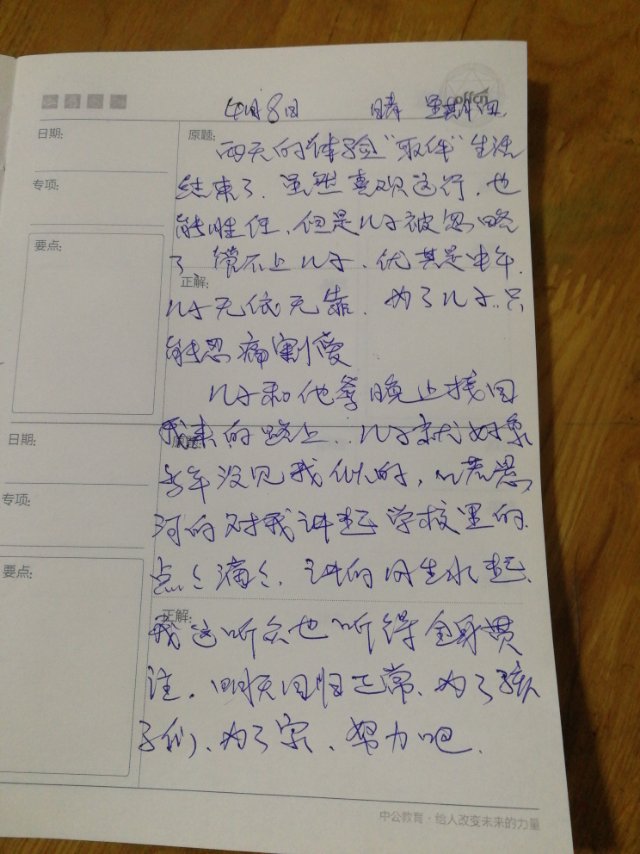 offcn
4月8日 晴 星期四
日期:
原题:
两天的体验“取件”生活
专项:
结束了.虽然喜欢这行.也
能胜任.但是儿子被忽略
要点:
了 管不上儿子.优其是中午.
正解:
儿子无依无靠.为了儿子.只
能忍痛割爱
儿子和他爹晚上接回
日期:
我来的路上..儿子就好象
多年没见我似的,
专项:
河的对我讲起学校里的.
点点滴滴.讲的风生水起.
要点:
正解:
我这听众也听得全身贯
注.明天回归正常、为了孩
子们、为了家、努力吧.
中公教育·给人改变未来的力量